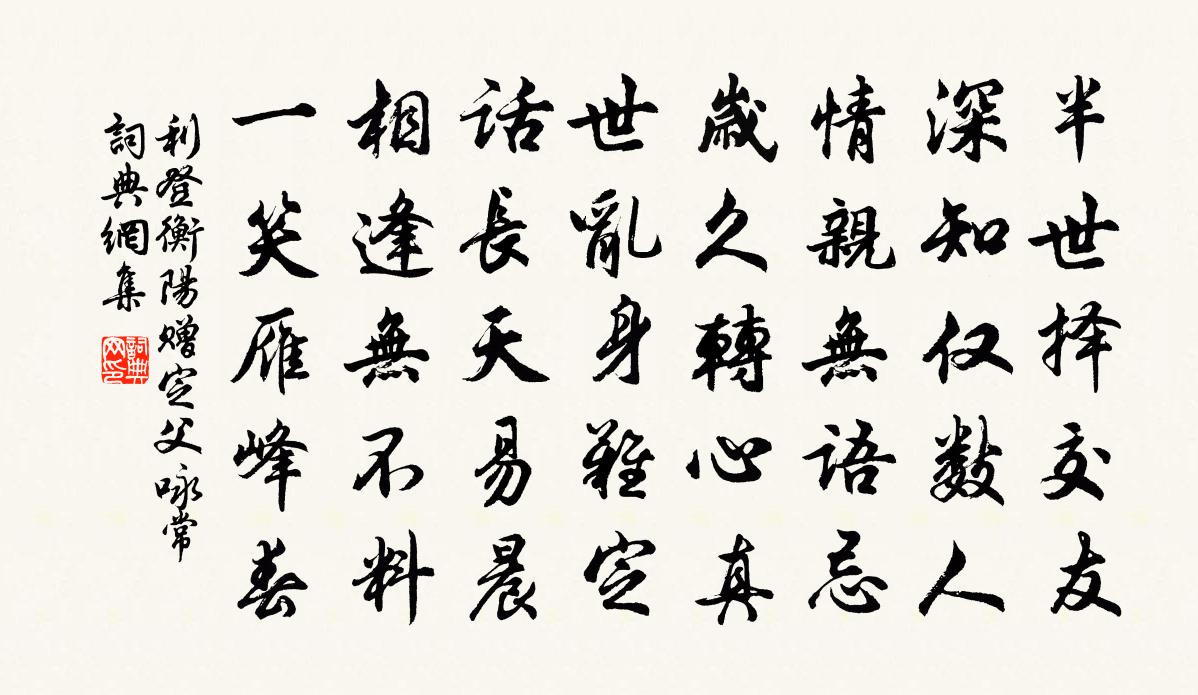 半世择交友
深知仅数人
情親無語忌
歳久轉心真
世亂身難定
話長天易晨
相逢無不料
一笑雁峰春
利登衡陽赠定父咏常
詞典網集
詞典網印